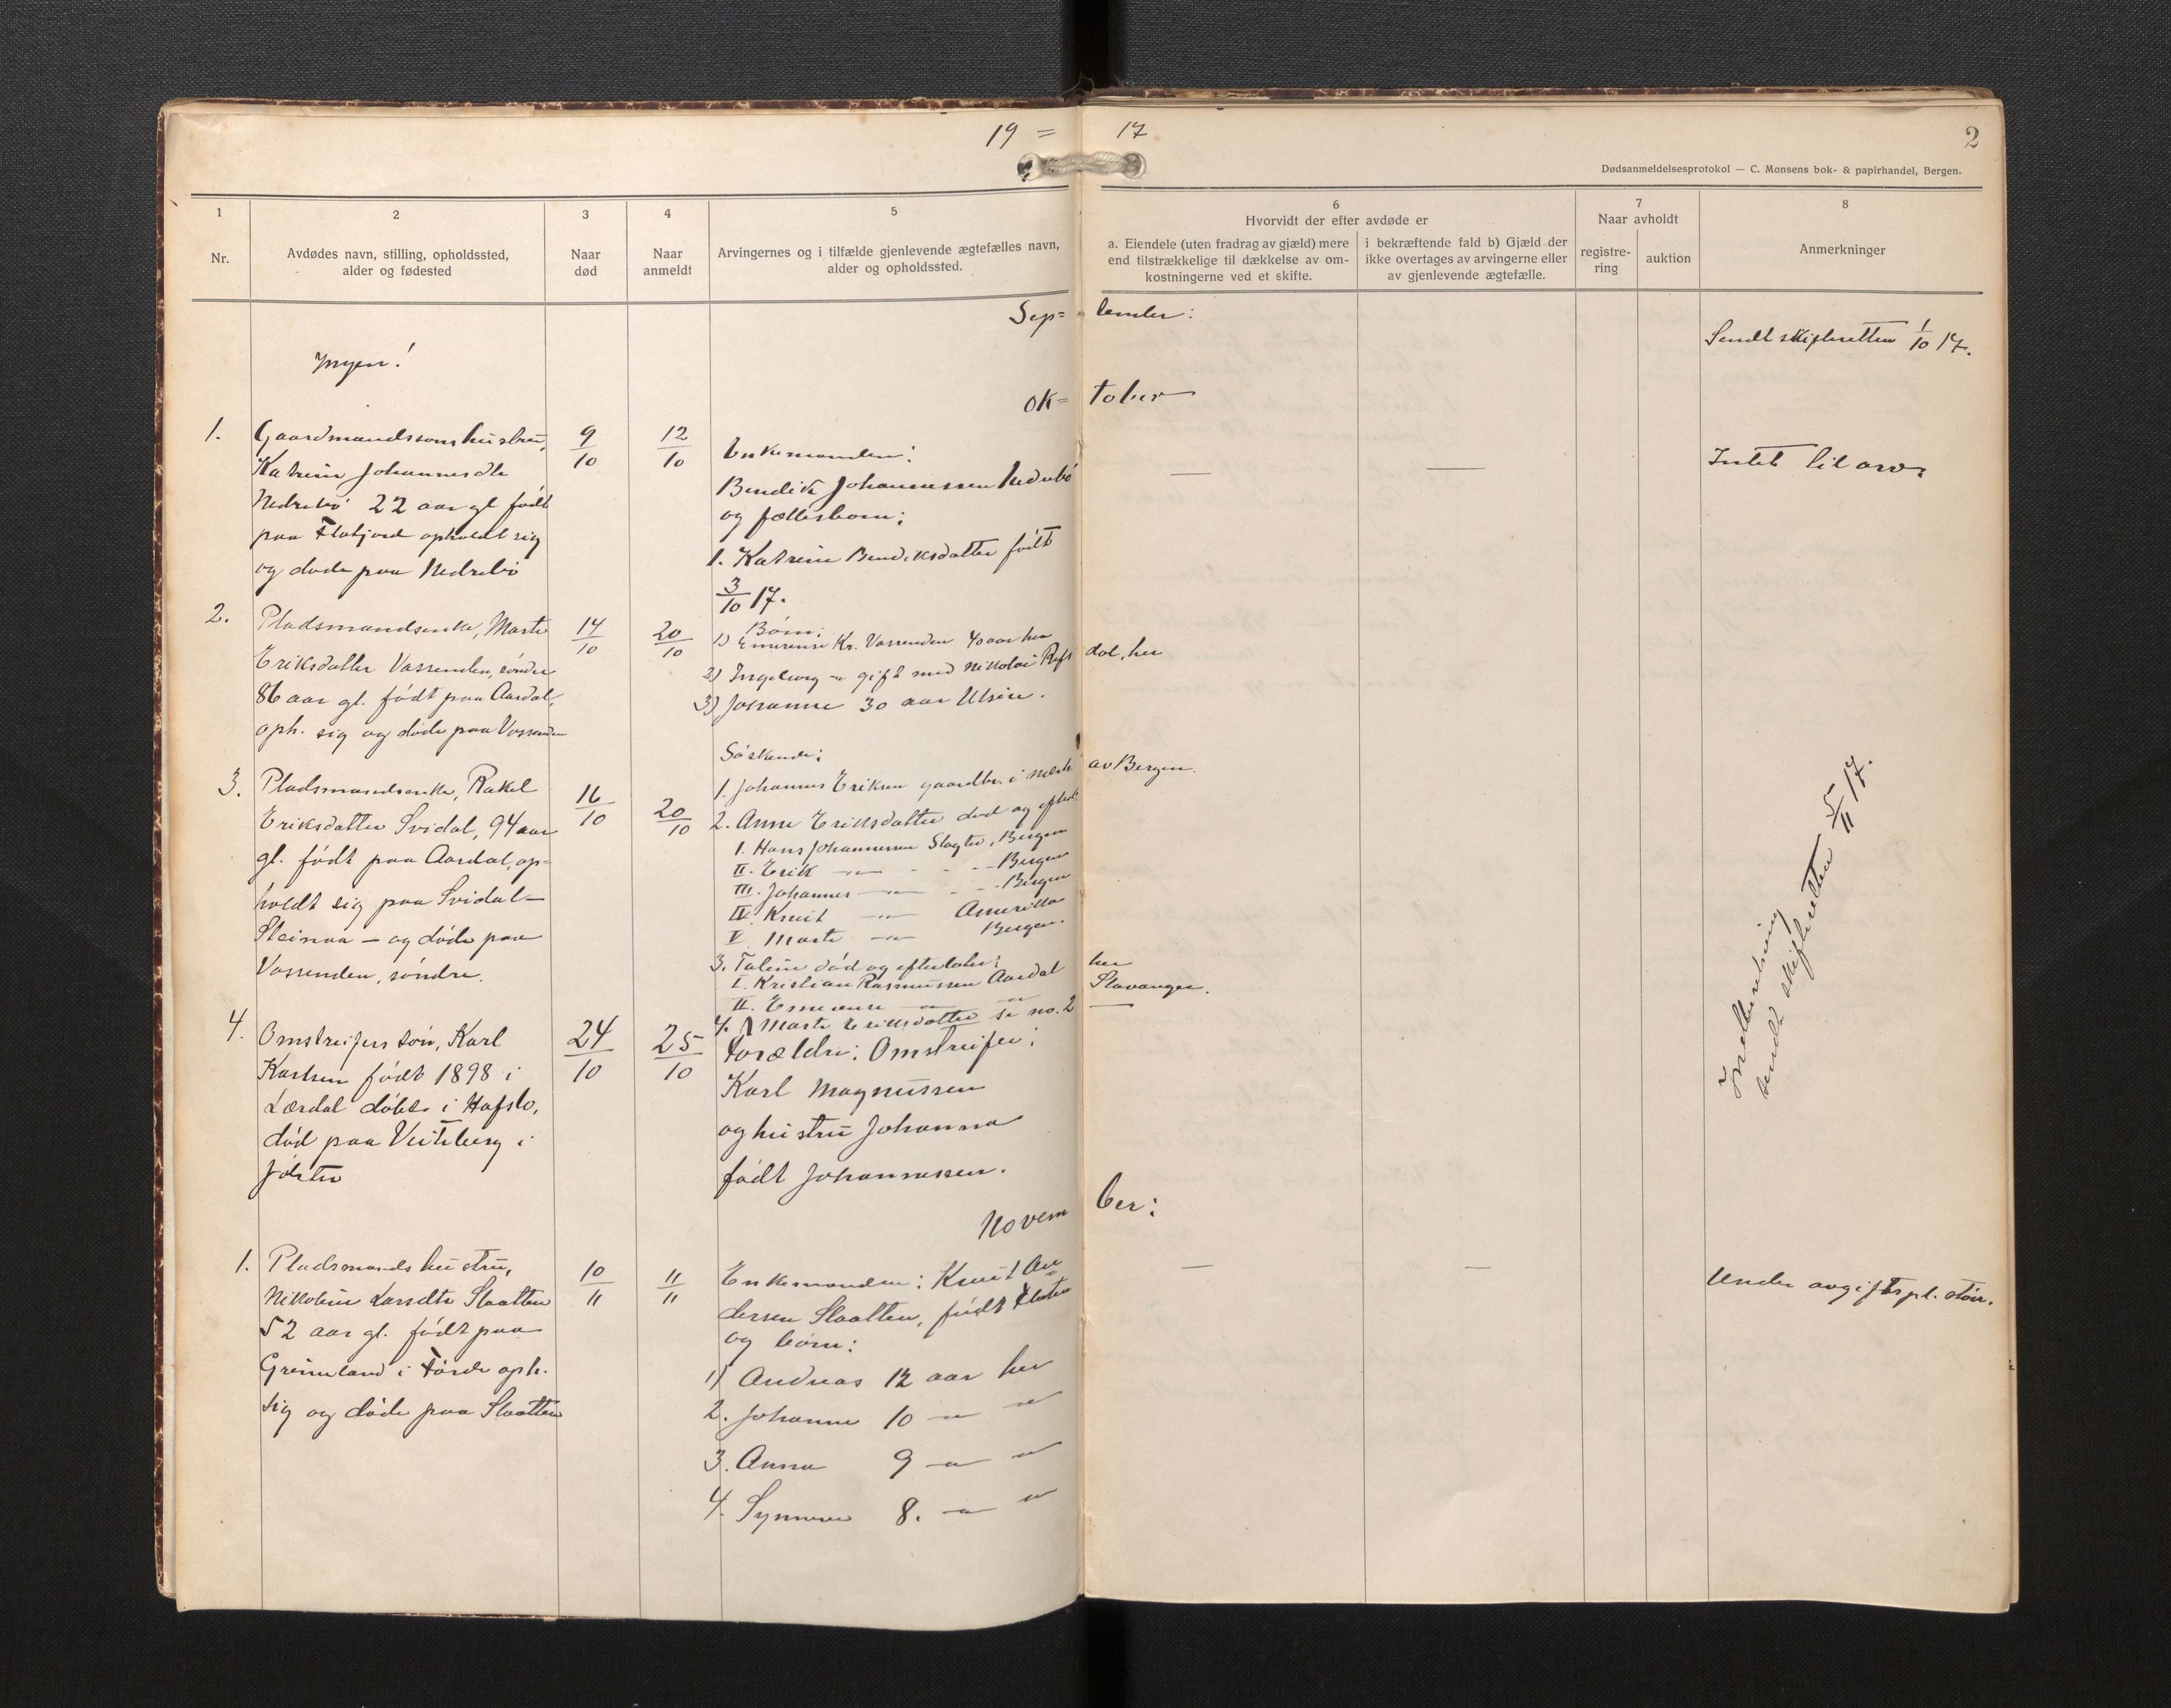 19 = 17
2
Dødsanmeldelsesprotokol — C. Monsens bok- & papirhandel, Bergen.
1
Nr.
2
Avdødes navn, stilling, opholdssted,
alder og fødested
3
Naar
død
4
Naar
anmeldt
5
Arvingernes og i tilfælde gjenlevende ægtefælles navn,
alder og opholdssted.
6
Hvorvidt der efter avdøde er
a. Eiendele (uten fradrag av gjæld) mere
end tilstrækkelige til dækkelse av om-
kostningerne ved et skifte.
i bekræftende fald b) Gjæld der
ikke overtages av arvingerne eller
av gjenlevende ægtefælle.
7
Naar avholdt
registre-
ring
auktion
8
Anmerkninger
Sep= tember:
Ingen!
Sendt skifteretten 1/10 17.
Ok= tober
1.
Gaardmandssons hustru,
Katrine Johannesdtr
Nedrebö 22 aar gl födt
paa Flatjord opholdt sig
og döde paa Nedrebö
9/10
12/10
Enkemanden:
Bendik Johannessen Nedrebö
og fællesbarn:
1. Katrine Bendiksdatter födt
3/10 17.
—
—
Intet til arv.
2.
Pladsmandsenke, Marte
Eriksdatter Vassenden, söndre
86 aar gl. födt paa Aardal,
oph. sig og döde paa Vassenden
14/10
20/10
Börn:
1) Emerense Kr. Vassenden 40 aar her
2) Ingeborg - " gift med Nikolai Refsdal, her
3) Johanne 30 aar Utsire.
3.
Pladsmandsenke, Rakel
Eriksdatter Svidal, 94 aar
gl. födt paa Aardal, op=
holdt sig paa Svidal-
Steinaa — og döde paa
Vassenden, söndre.
16/10
20/10
Söskende:
1. Johannes Eriksen gaardbr. i nærh. av Bergen.
2. Anne Eriksdatter död og efterl.
I. Hans Johannessen Slagter, Bergen
II. Erik — " — - - Bergen
III. Johannes — " — - - Bergen
IV. Knut — " — Amerika
V. Marte — " — Bergen.
3. Taline död og efterlater:
I. Kristian Rasmussen Aardal her
II. Emerense — " — " Stavanger.
4. Marte Eriksdatter se no. 2 —
Indberetning
sendt skifteretten 5/11 17.
4.
Omstreifers sön, Karl
Karlsen födt 1898 i
Lærdal döbt i Hafslo,
död paa Veiteberg i
Jölster
24/10
25/10
Forældre: Omstreifer:
Karl Magnussen
og hustru Johanna
födt Johannessen.
Novem ber:
1.
Pladsmands hustru,
Nikoline Larsdtr Slaatten
52 aar gl. födt paa
Grimeland i Förde oph.
sig og döde paa Slaatten
10/11
11/11
Enkemanden: Knut An=
dersen Slaatten, födt
og börn:
1) Andreas 12 aar her
2. Johanne 10 — " — "
3. Anna 9 — " — "
4. Synneve 8. — " — "
—
—
Under avgiftspl. störr.